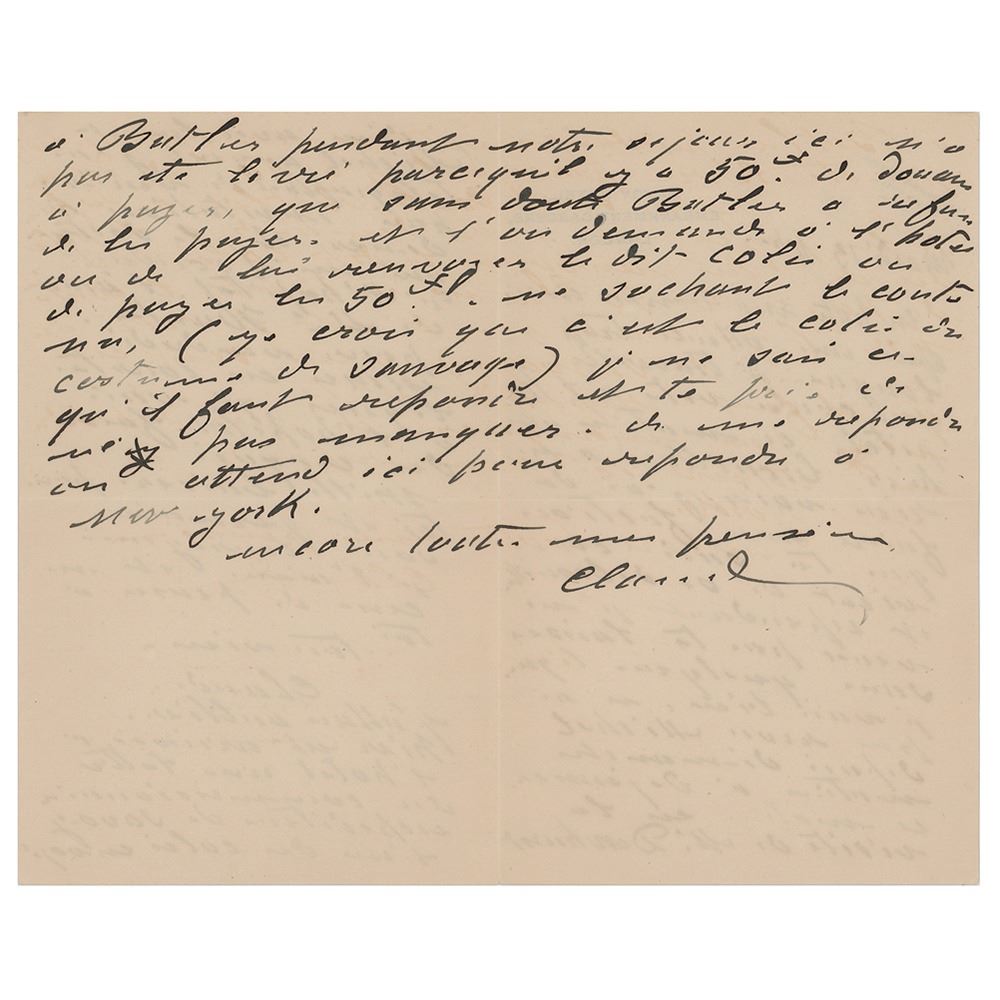 à Butler pendant notre sejour ici n'a
pas ete livré parcequ'il y a 50 fr de douane
à payer, que sans doute Butler a refusé
de les payer. et l'on demande à l'hotel
ou de lui renvoyer le dit colis ou
de payer les 50 fr. ne sachant le conte
nu, (je crois que c'est le colis du
costume de sauvage) je ne sais ce
qu'il faut repondre et te prie de
ne pas manquer de me repondre
on attend ici pour repondre à
New york.
encore toutes mes pensées
Claude